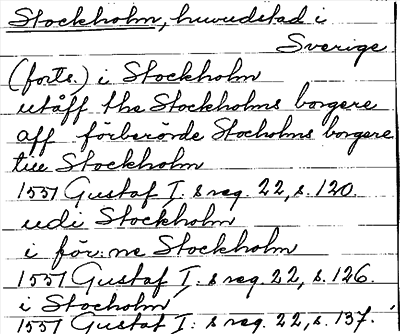 Stockholm, huvudstad i
Sverige
(forts.) i Stockholm
utåff the Stockholms borgere
aff förberörde Stocholms borgere
till Stockholm
1551 Gustaf I:s reg. 22, s. 120.
udi Stockholm
i för:ne Stockholm
1551 Gustaf I:s reg. 22, s. 126.
i Stocholm
1551 Gustaf I:s reg. 22, s. 137.